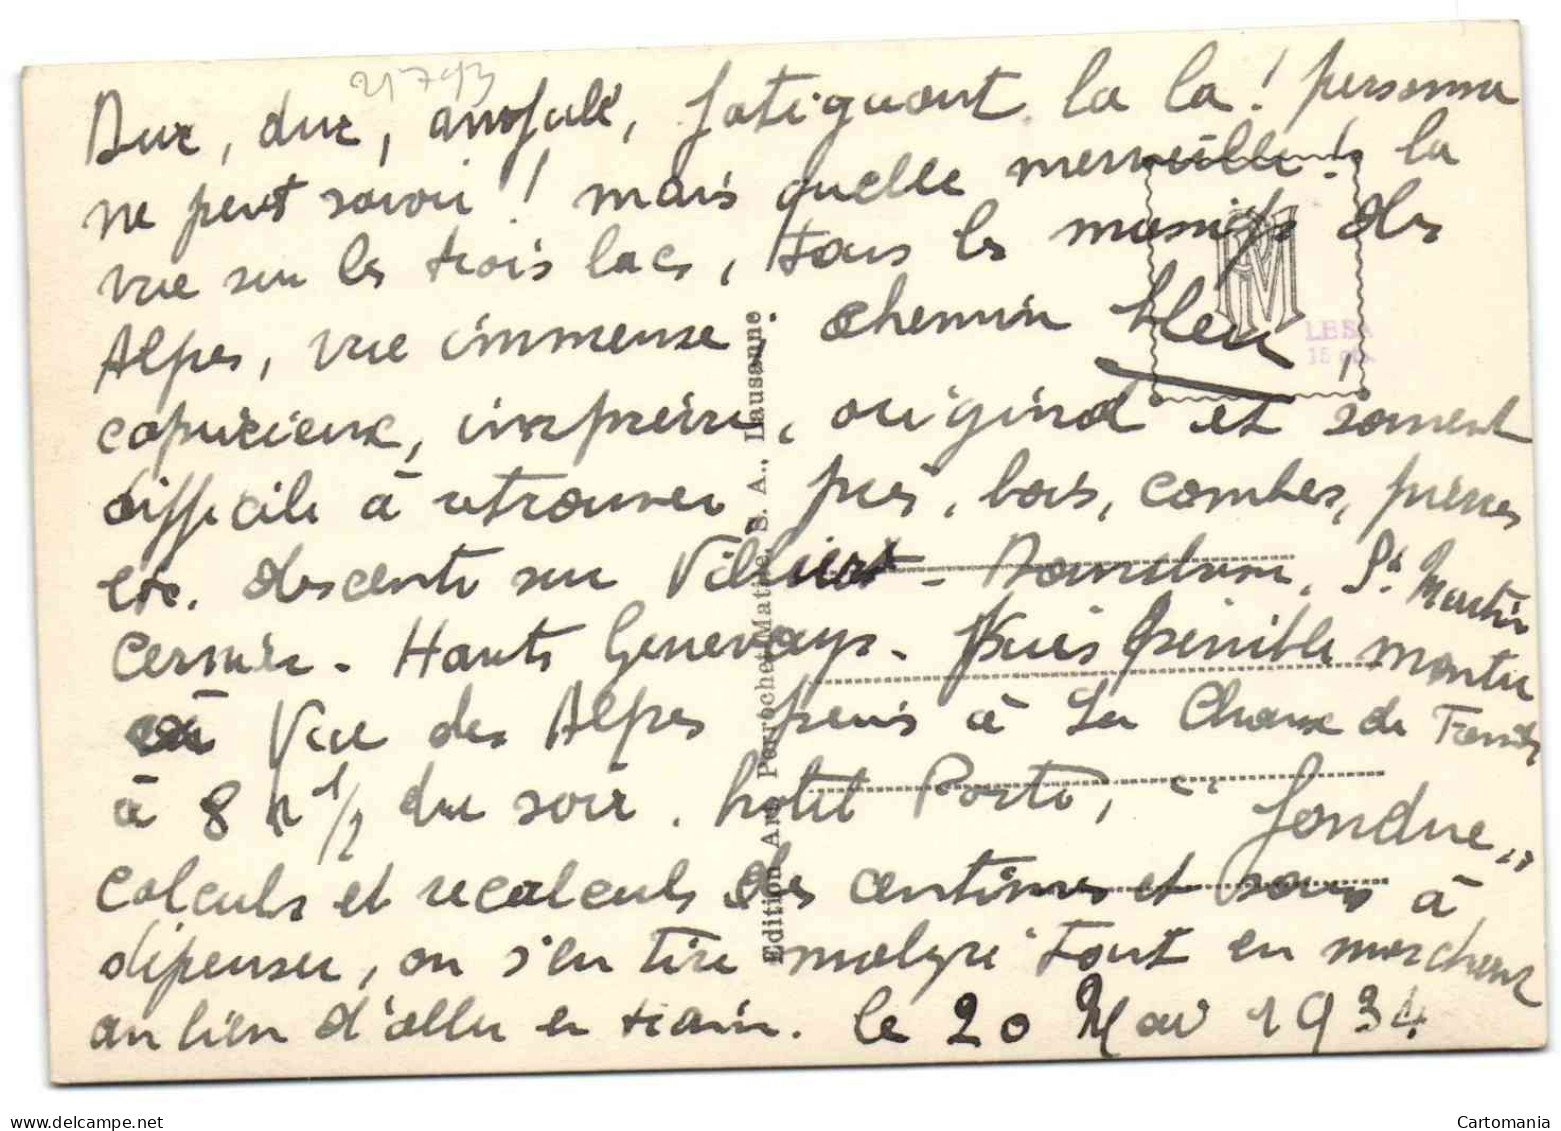 21793
Dur, dur, fatiguant la la! personne
ne peut savoir! mais quelle merveille! la
vue sur les trois lacs, tous les massifs des
Alpes, vue immense; chemin bleu,
capricieux, imprévu, original et souvent
difficile à retrouver prés, bois, combes, pierres
etc. descente sur Villiers - Dombresson, St Martin
Cernier - Hauts Geneveys - Puis pénible montée
à Vue des Alpes puis à La Chaux de Fonds
à 8 h 1/2 du soir. hotel Poste, "fondue"
calculs et recalculs des centimes et sous à
dépenser, on s'en tire malgré tout en marchant
au lieu d'aller en train. le 20 Mai 1934
Edition Art. Perrochet-Matile, S. A., Lausanne
PM
LESA
15 cts.
Cartomania
www.delcampe.net